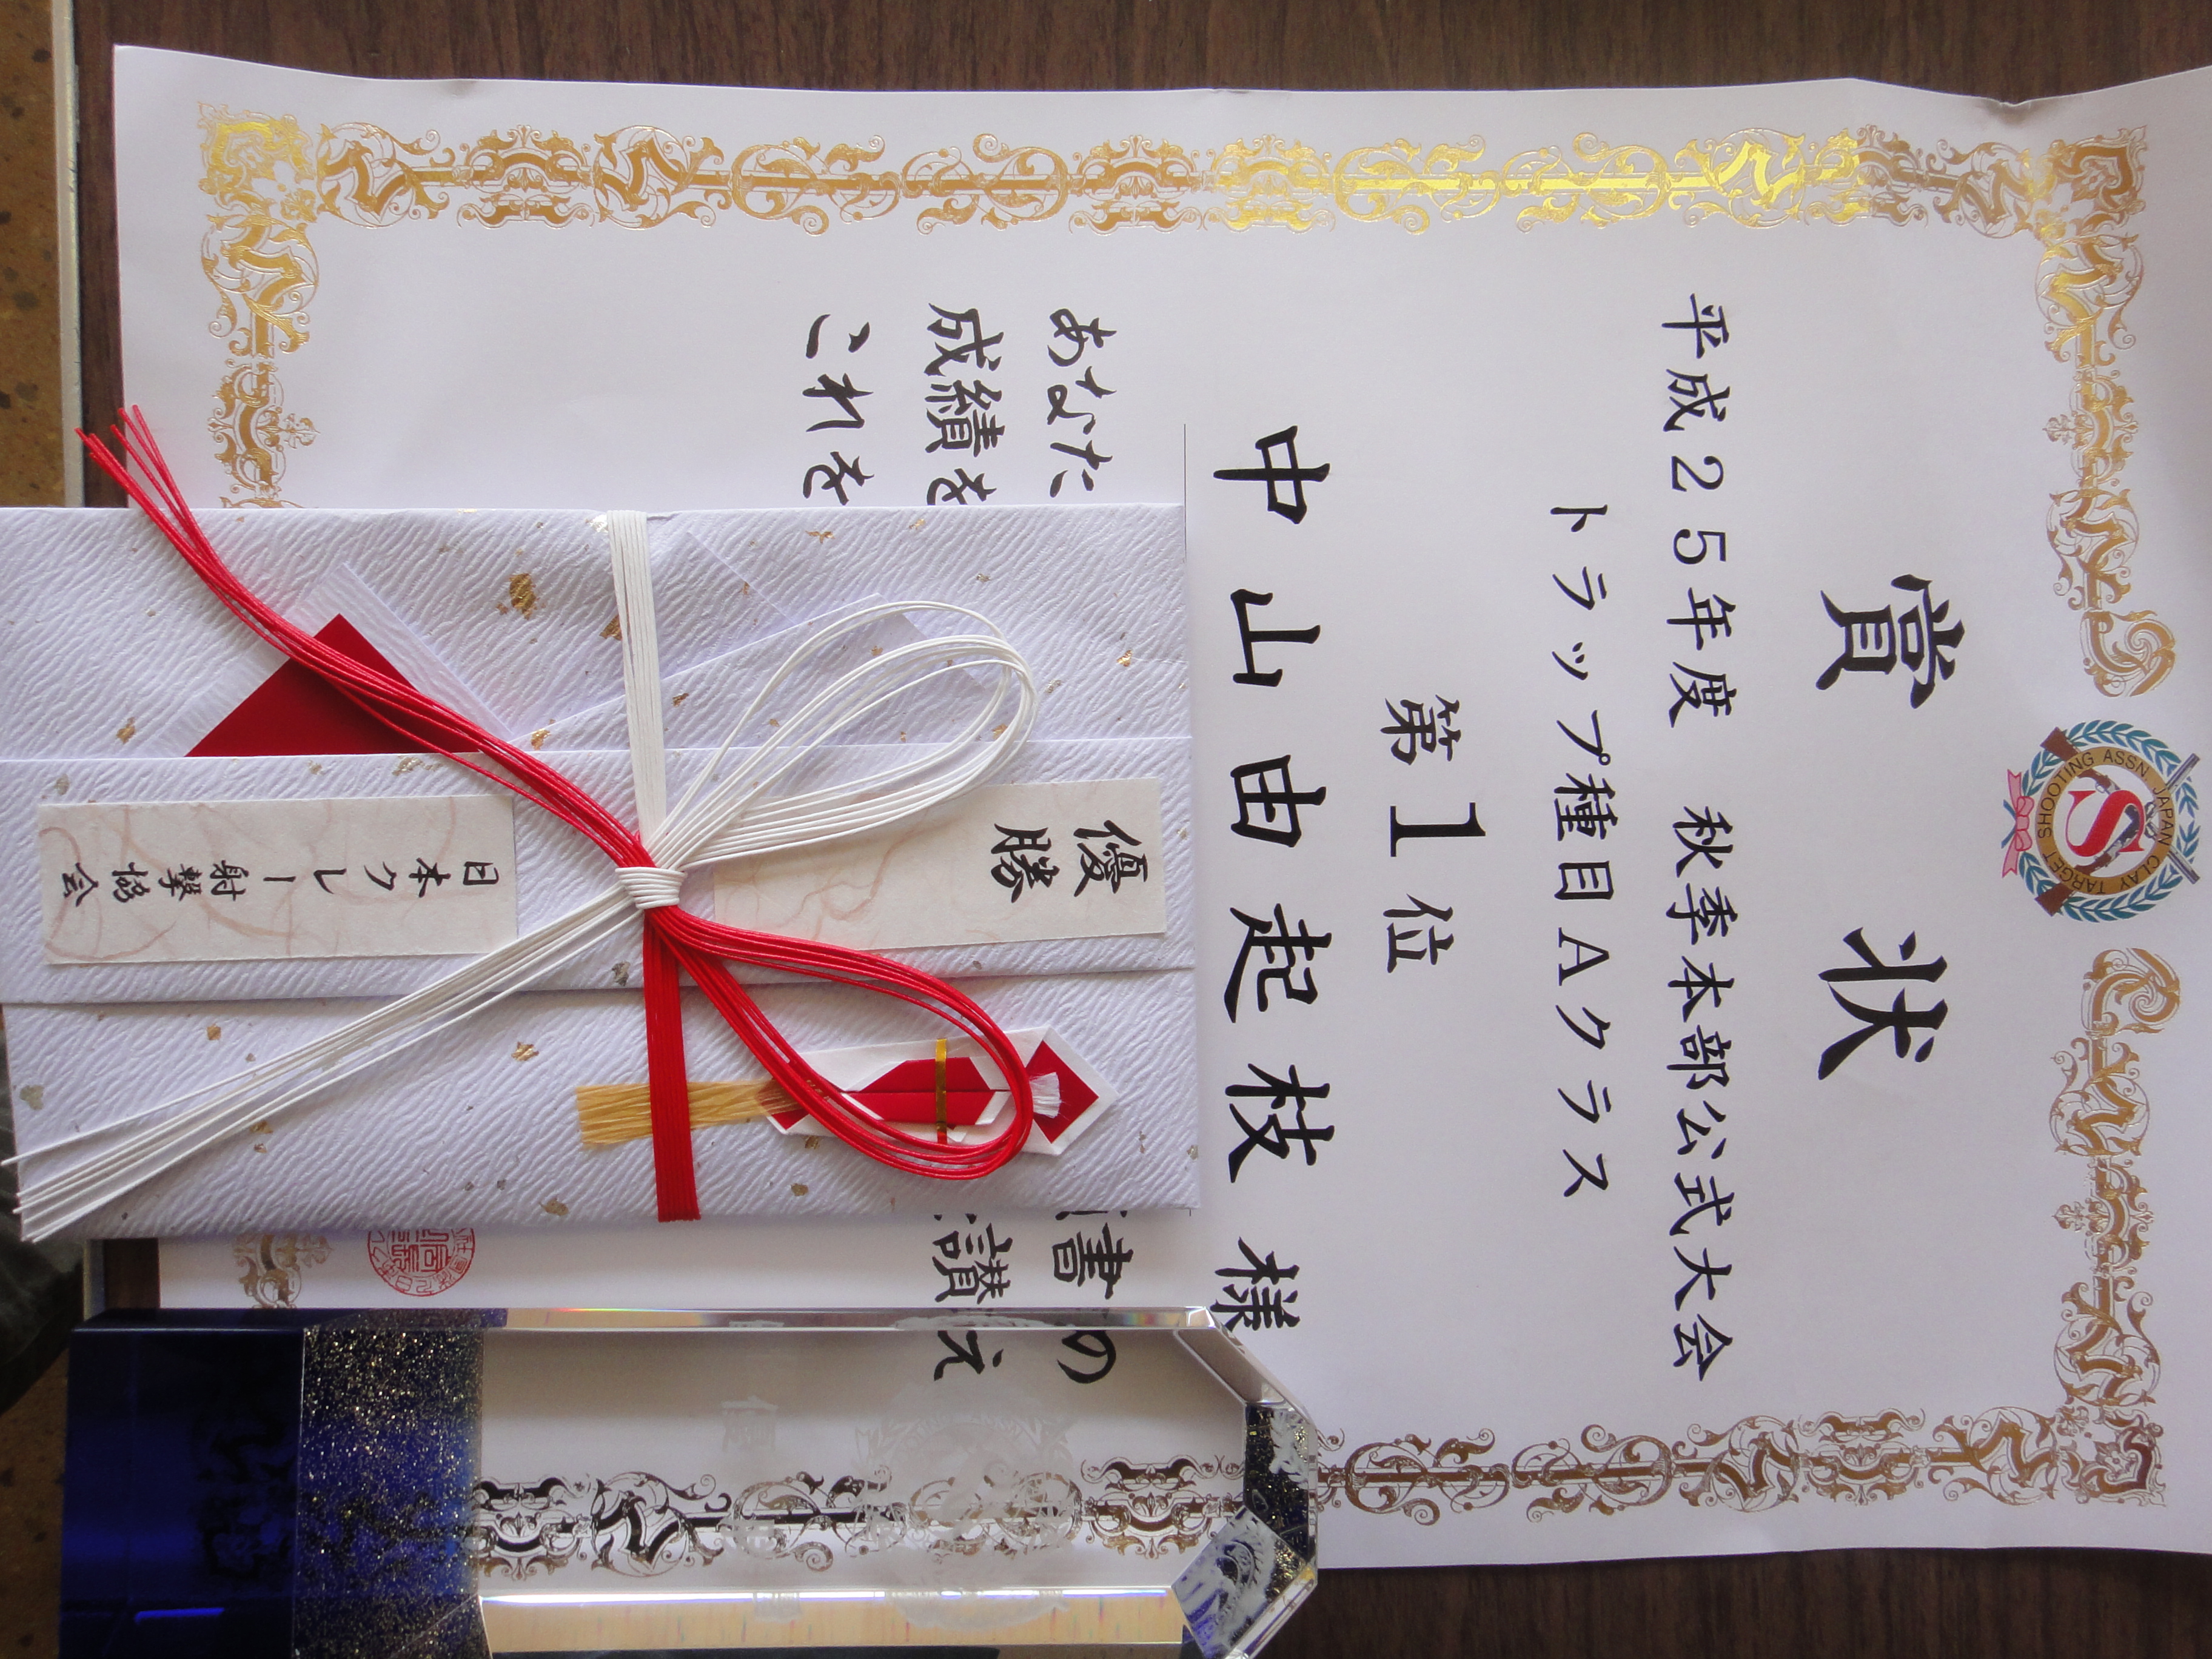 JAPAN CLAY TARGET SHOOTING ASSN
S
賞状
平成25年度 秋季本部公式大会
トラップ種目Aクラス
第1位
中山由起枝様
あなた
書の
成績を
讃え
これを
優勝
日本クレー射撃協会